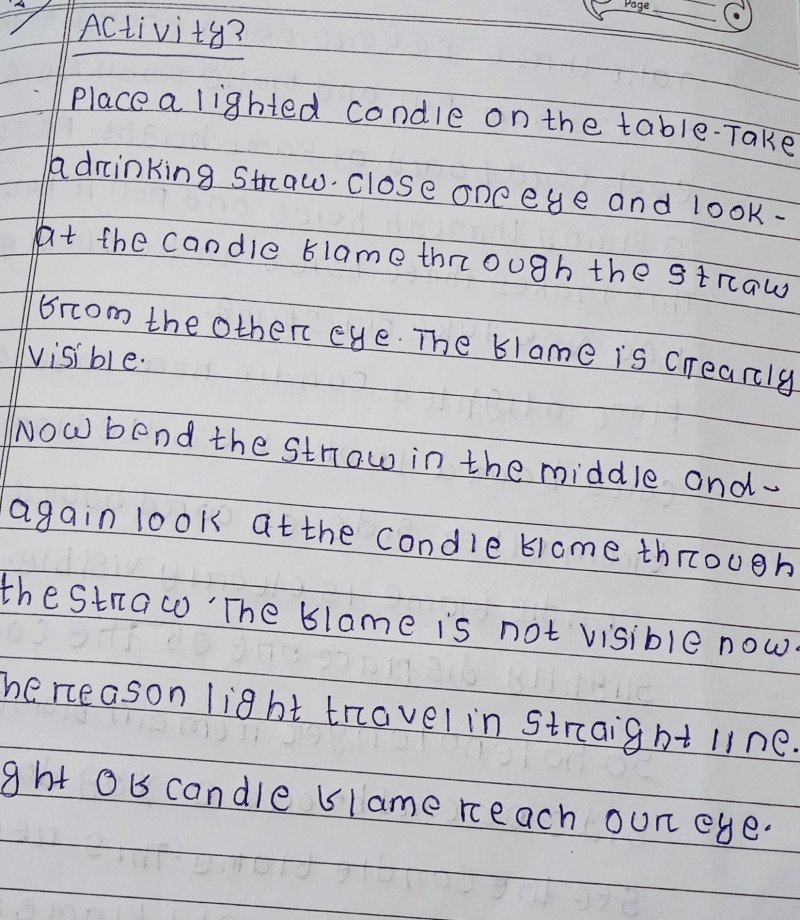 Page
Activity?
Place a lighted candle on the table. Take
a drinking straw. Close one eye and look-
at the candle flame through the straw
from the other eye. The flame is crearly
visible.
Now bend the straw in the middle and-
again look at the candle flame through
the straw. The flame is not visible now.
he reason light travel in straight line.
ght of candle flame reach our eye.